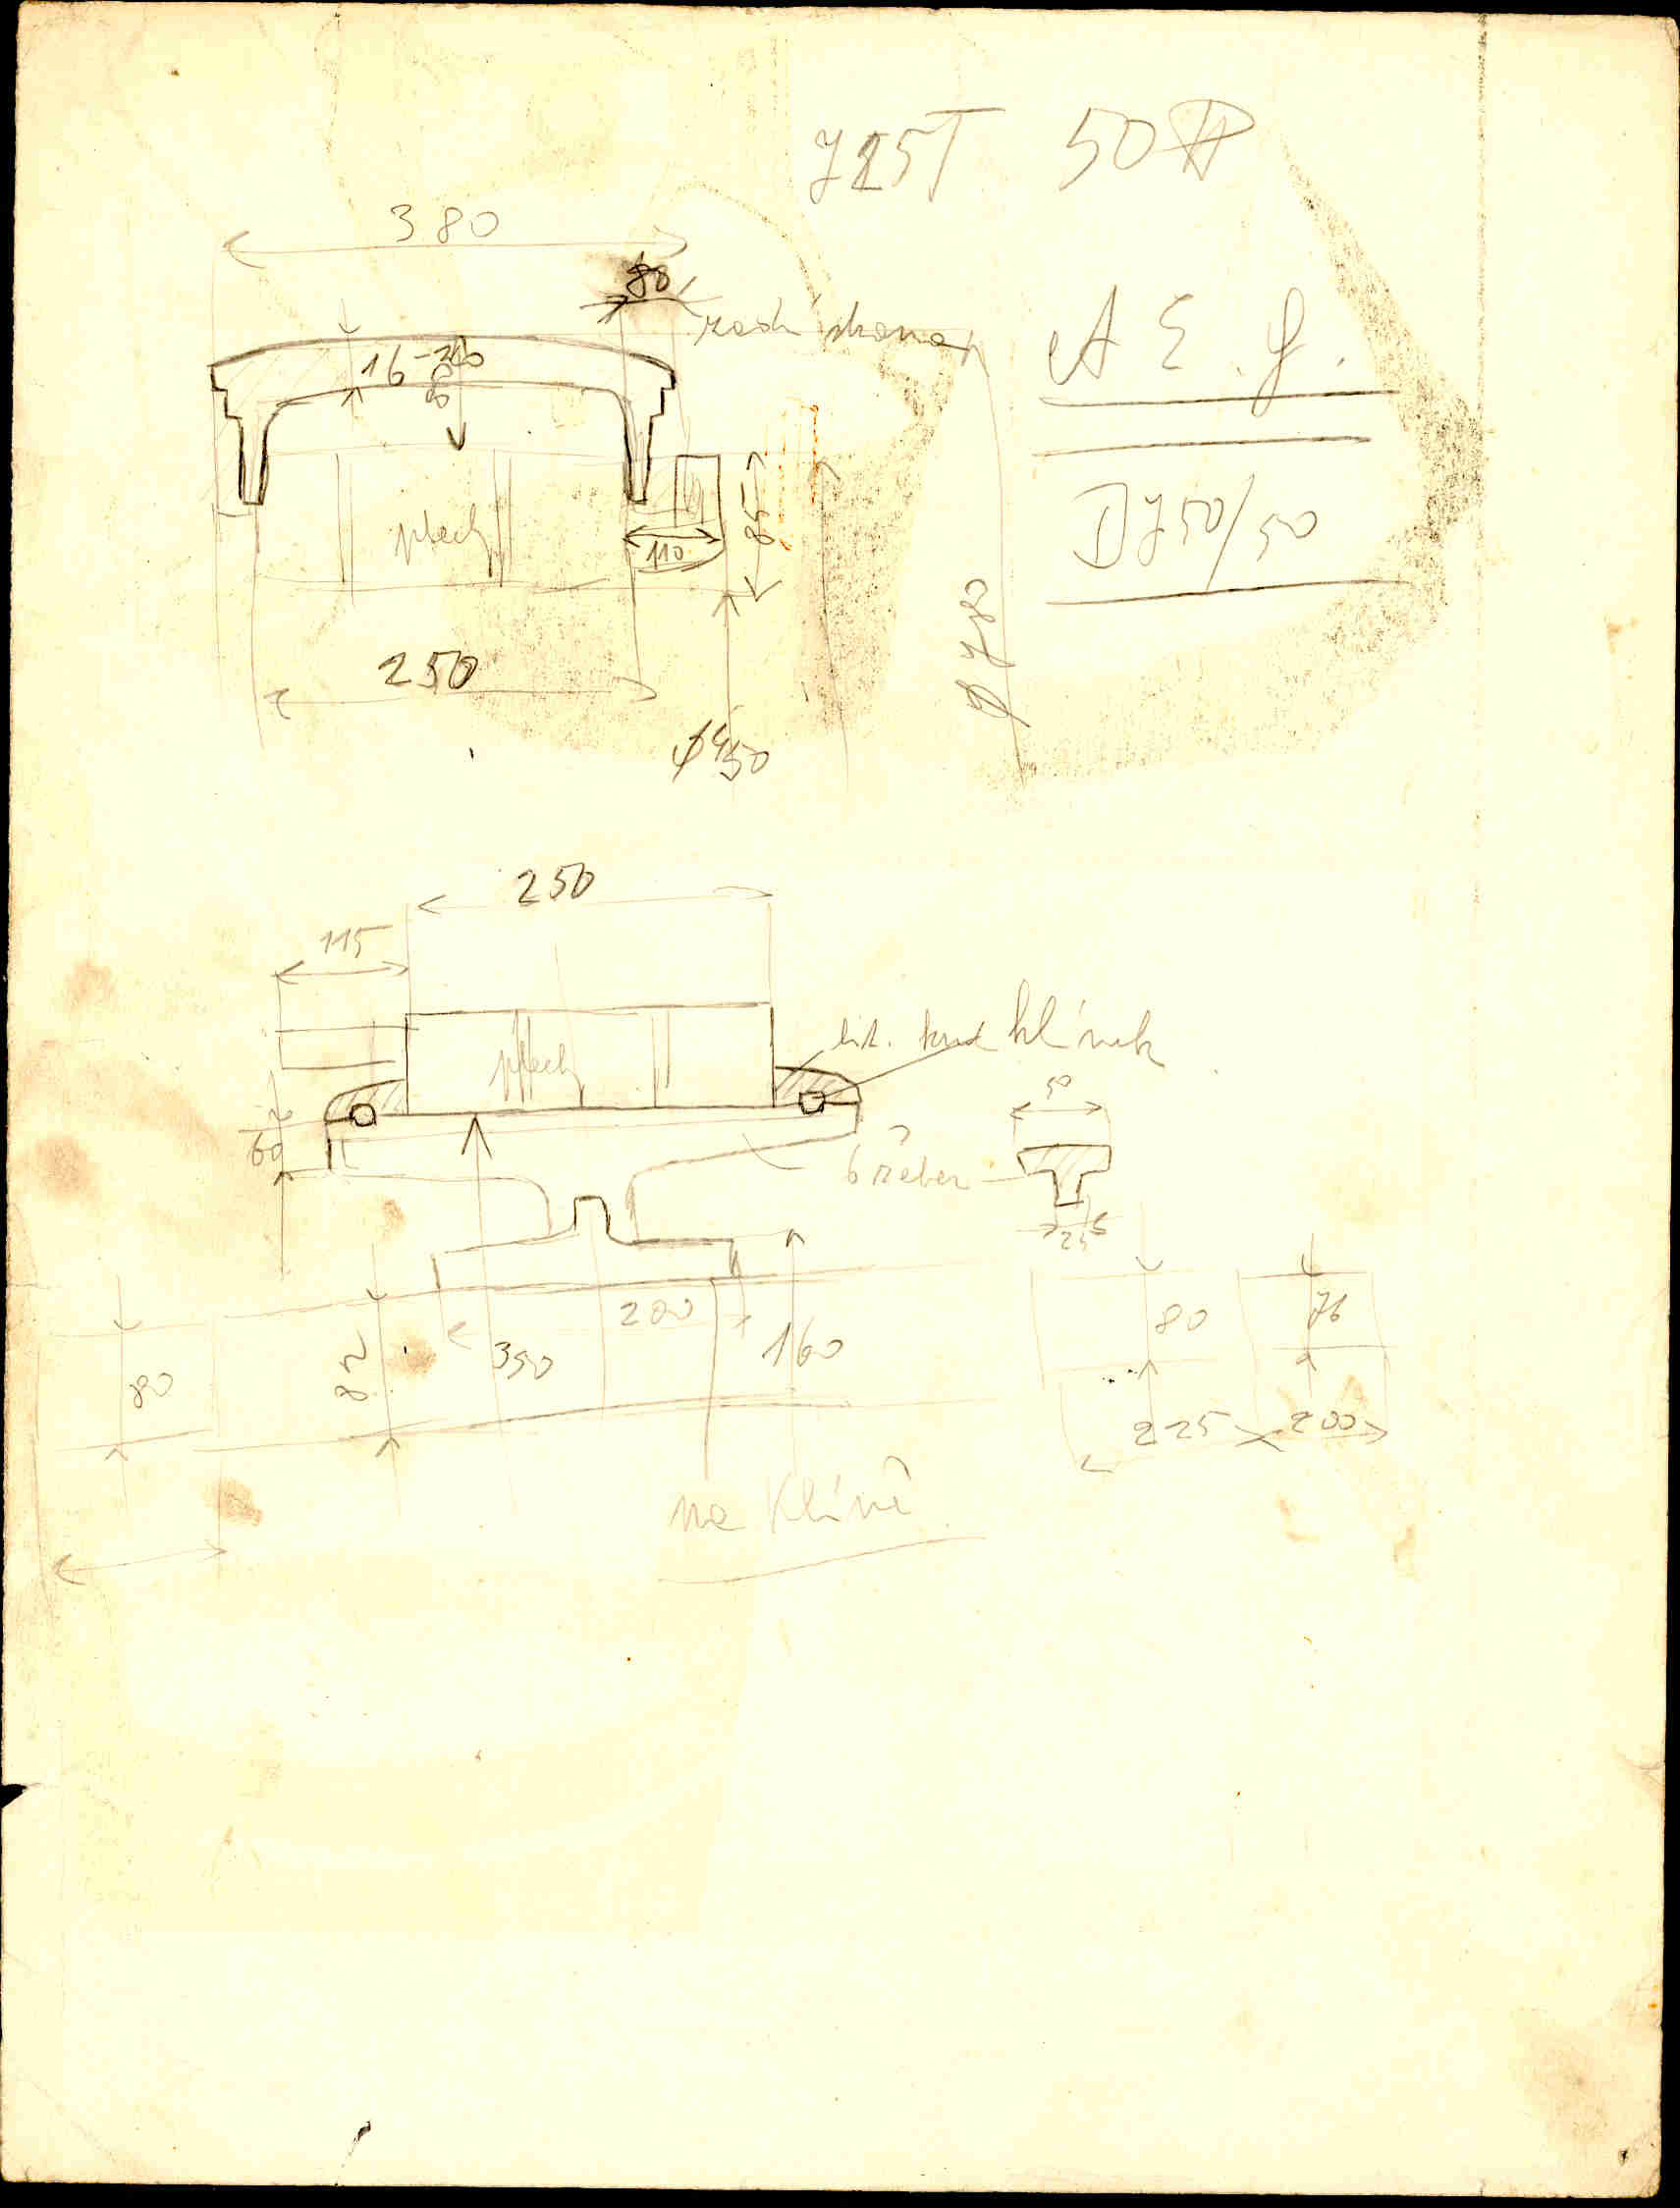 380
80
16-20
80
A E. G.
DJ50/50
plech
110
85
250
ø 450
ø 780
250
115
plech
lit. kruh klínek
50
60
6 žeber
25
200
350
160
82
80
80
76
225
200
na klíně